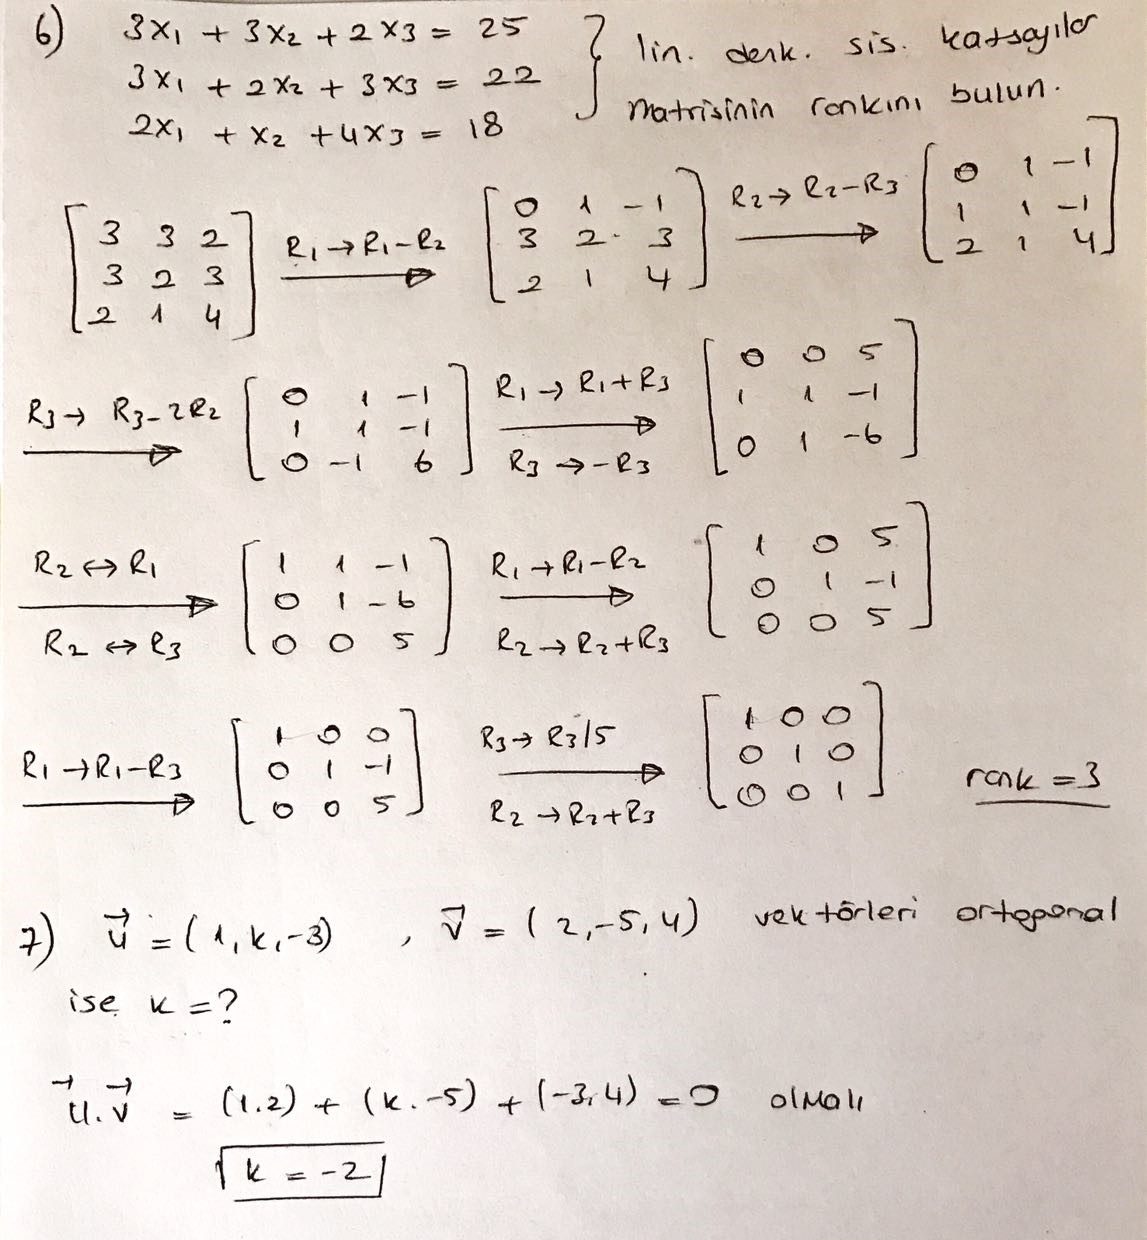 6) 3x₁ + 3x₂ + 2x₃ = 25
3x₁ + 2x₂ + 3x₃ = 22
2x₁ + x₂ + 4x₃ = 18
} lin. denk. sis. katsayılar
matrisinin rankını bulun.
[3 3 2; 3 2 3; 2 1 4] R₁→R₁-R₂ [0 1 -1; 3 2 3; 2 1 4] R₂→R₂-R₃ [0 1 -1; 1 1 -1; 2 1 4]
R₃→R₃-2R₂ [0 1 -1; 1 1 -1; 0 -1 6] R₁→R₁+R₃ R₃→-R₃ [0 0 5; 1 1 -1; 0 1 -6]
R₂↔R₁ R₂↔R₃ [1 1 -1; 0 1 -6; 0 0 5] R₁→R₁-R₂ R₂→R₂+R₃ [1 0 5; 0 1 -1; 0 0 5]
R₁→R₁-R₃ [1 0 0; 0 1 -1; 0 0 5] R₃→R₃/5 R₂→R₂+R₃ [1 0 0; 0 1 0; 0 0 1] rank = 3
7) u⃗ = (1, k, -3) , v⃗ = (2, -5, 4) vektörleri ortogonal
ise k = ?
u⃗.v⃗ = (1.2) + (k.-5) + (-3.4) = 0 olmalı
k = -2